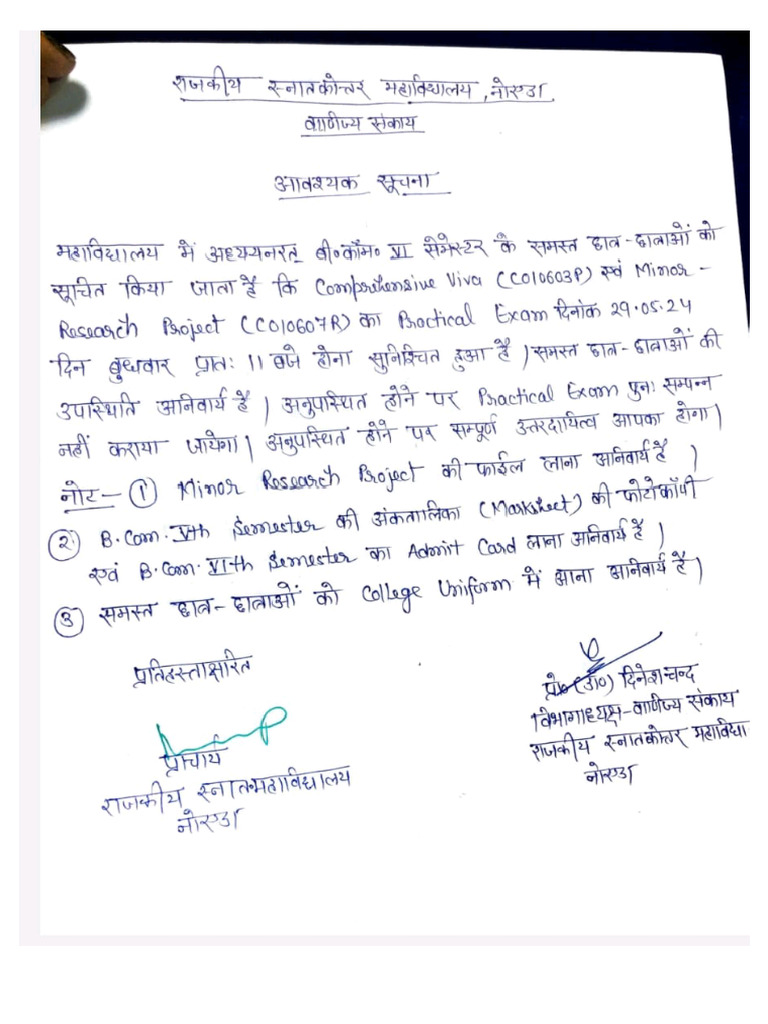 राजकीय स्नातकोत्तर महाविद्यालय, नोएडा
वाणिज्य संकाय
आवश्यक सूचना
महाविद्यालय में अध्ययनरत् बी०कॉम० VI सेमेस्टर के समस्त छात्र-छात्राओं को
सूचित किया जाता है कि Comprehensive Viva (C010603P) एवं Minor-
Research Project (C010607R) का Practical Exam दिनांक 29.05.24
दिन बुधवार प्रातः 11 बजे होना सुनिश्चित हुआ है। समस्त छात्र-छात्राओं की
उपस्थिति अनिवार्य है। अनुपस्थित होने पर Practical Exam पुनः सम्पन्न
नहीं कराया जायेगा। अनुपस्थित होने पर सम्पूर्ण उत्तरदायित्व आपका होगा।
नोट- ① Minor Research Project की फाईल लाना अनिवार्य है।
② B.Com. Vth Semester की अंकतालिका (Marksheet) की फोटोकॉपी
एवं B.Com. VIth Semester का Admit Card लाना अनिवार्य है।
③ समस्त छात्र-छात्राओं को College Uniform में आना अनिवार्य है।
प्रतिहस्ताक्षरित
प्राचार्य
राजकीय स्नात०महाविद्यालय
नोएडा
प्रो० (डॉ०) दिनेश चन्द
विभागाध्यक्ष-वाणिज्य संकाय
राजकीय स्नातकोत्तर महाविद्या
नोएडा